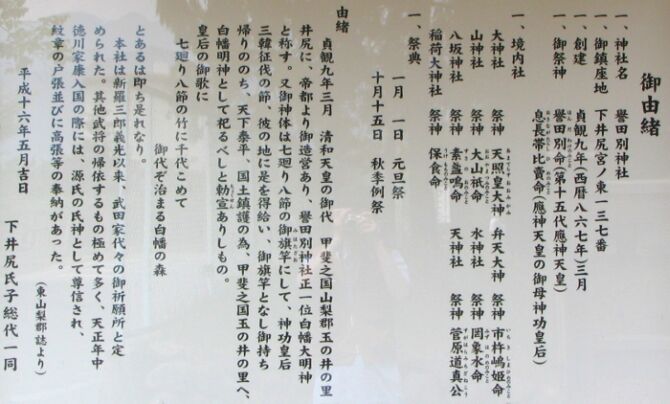 御由緒
一、神社名　誉田別神社
一、御鎮座地　下井尻宮ノ東一三七番
一、創建　貞観九年(西暦八六七年)三月
一、御祭神　誉田別命(第十五代應神天皇)
息長帯比賣命(應神天皇の御母神功皇后)
一、境内社
大神社　祭神　天照皇大神　弁天大神　祭神　市杵嶋姫命
山神社　祭神　大山祇命　水神社　祭神　罔象水命
八坂神社　祭神　素盞嗚命　天神社　祭神　菅原道真公
稲荷大神社　祭神　保食命
一、祭典
一月一日　元旦祭
十月十五日　秋季例祭
由緒
貞観九年三月　清和天皇の御代　甲斐之国山梨郡玉の井の里
井尻に、帝都より御造営あり、誉田別神社正一位白幡大明神
と称す。又御神体は七廻り八節の御旗竿にして、神功皇后
三韓征伐の節、彼の地に是を得給い、御旗竿となし御持ち
帰りののち、天下泰平、国土鎮護の為、甲斐之国玉の井の里へ、
白幡明神として祀るべしと勅宣ありしもの。
皇后の御歌に
七廻り八節の竹に千代こめて
御代ぞ治まる白幡の森
とあるは即ち是れなり。
本社は新羅三郎義光以来、武田家代々の御祈願所と定
められた。其他武将の帰依するもの極めて多く、天正年中
徳川家康入国の際には、源氏の氏神として尊信され、
紋章の戸張並びに高張等の奉納があった。
(東山梨郡誌より)
平成十六年五月吉日
下井尻氏子総代一同